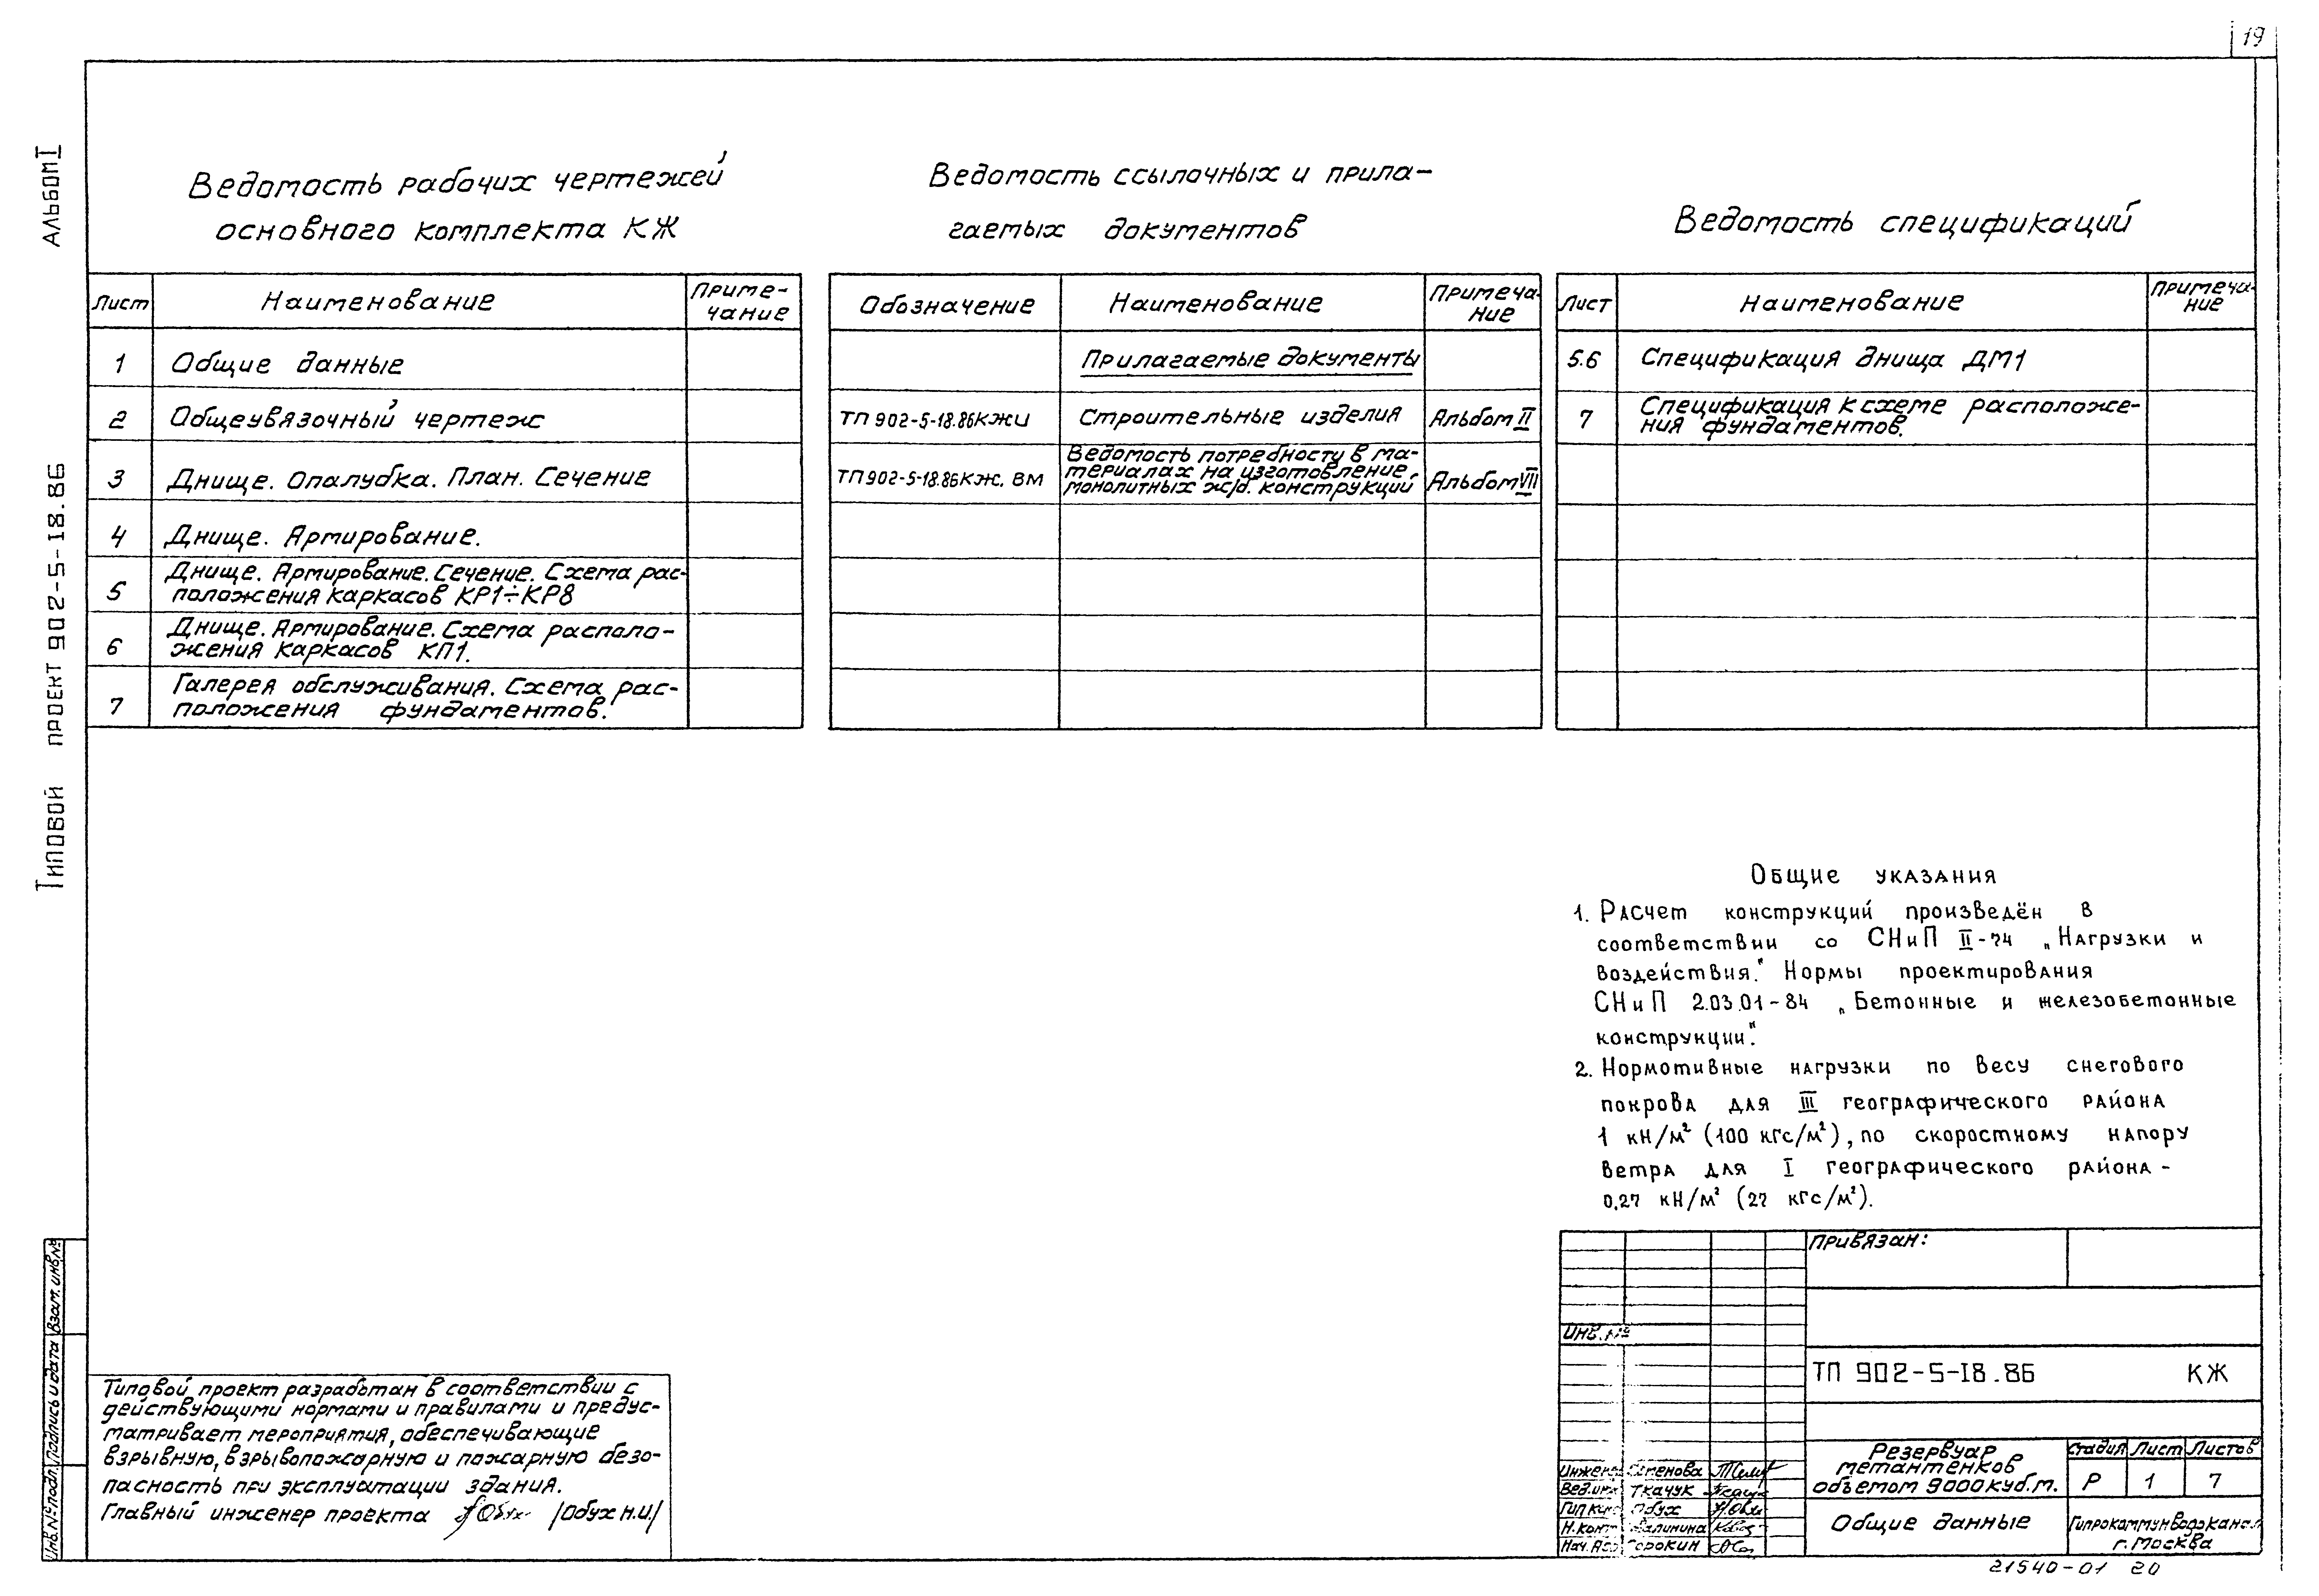 19
Альбом I
Типовой проект 902-5-18.86
Ведомость рабочих чертежей
основного комплекта КЖ
Лист Наименование Приме-
чание
1 Общие данные
2 Общеувязочный чертеж
3 Днище. Опалубка. План. Сечение
4 Днище. Армирование.
5 Днище. Армирование. Сечение. Схема рас-
положения каркасов КР1÷КР8
6 Днище. Армирование. Схема располо-
жения каркасов КП1.
7 Галерея обслуживания. Схема рас-
положения фундаментов.
Ведомость ссылочных и прила-
гаемых документов
Обозначение Наименование Примеча-
ние
Прилагаемые документы
ТП 902-5-18.86 КЖИ Строительные изделия Альбом II
ТП 902-5-18.86 КЖ. ВМ Ведомость потребносту в ма-
териалах на изготовление
монолитных ж/б. конструкций Альбом VII
Ведомость спецификаций
Лист Наименование Примеча-
ние
5.6 Спецификация днища ДМ1
7 Спецификация к схеме расположе-
ния фундаментов.
Общие указания
1. Расчет конструкций произведён в
соответствии со СНиП II-74 „Нагрузки и
воздействия." Нормы проектирования
СНиП 2.03.01-84 „Бетонные и железобетонные
конструкции".
2. Нормотивные нагрузки по весу снегового
покрова для III географического района
1 кН/м² (100 кгс/м²), по скоростному напору
ветра для I географического района -
0,27 кН/м² (27 кгс/м²).
Привязан:
Инв. №
ТП 902-5-18.86 КЖ
Резервуар
метантенков
объемом 9000 куб. м.
Стадия Лист Листов
Р 1 7
Общие данные
Гипрокоммунводоканал
г. Москва
Вед. инж Ткачук
Обух
Н. конт
21540-01 20
Типовой проект разработан в соответствии с
действующими нормами и правилами и предус-
матривает мероприятия, обеспечивающие
взрывную, взрывопожарную и пожарную безо-
пасность при эксплуатации здания.
Главный инженер проекта /Обух Н.И/
Инв. № подл. Подпись и дата Взам. инв. №